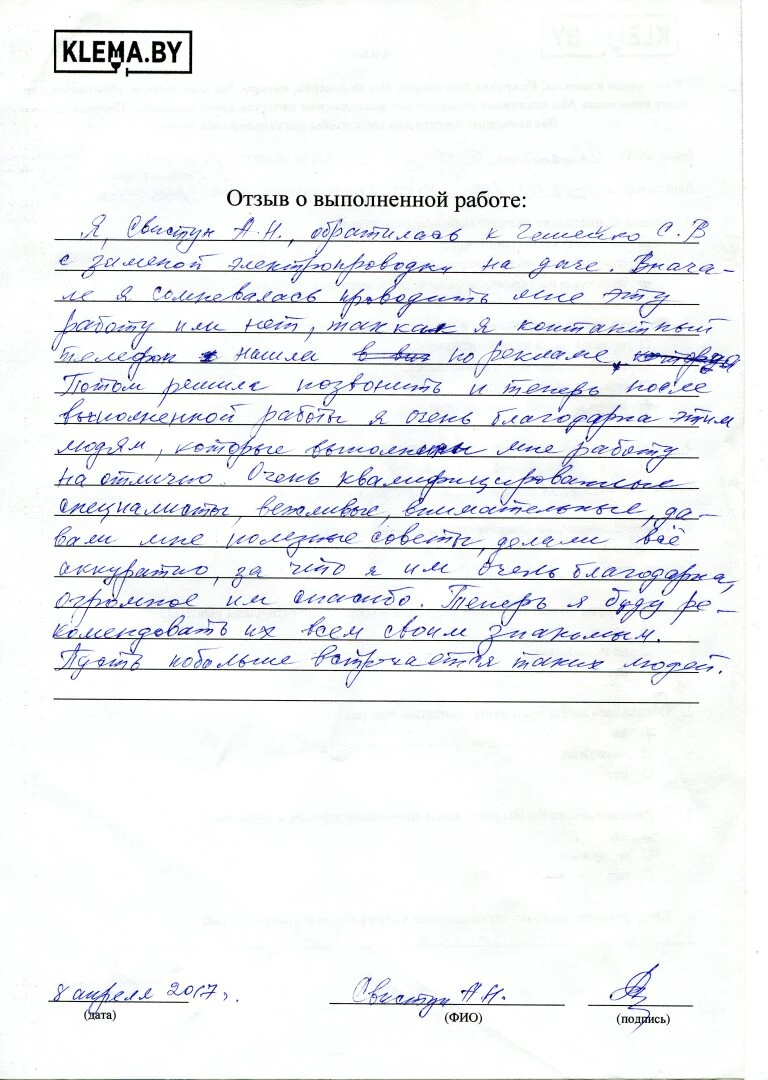 KLEMA.BY
Отзыв о выполненной работе:
Я, Свистун А.Н., обратилась к С.В
с заменой электропроводки на даче. Внача-
ле я сомневалась проводить мне эту
работу или нет, так как я контактный
телефон нашла по рекламе.
Потом решила позвонить и теперь после
выполненной работы я очень благодарна этим
людям, которые выполнены мне работу
на отлично. Очень квалифицированные
специалисты, вежливые, внимательные, да-
вали мне полезные советы, делали всё
аккуратно, за что я им очень благодарна,
огромное им спасибо. Теперь я буду ре-
комендовать их всем своим знакомым.
Пусть побольше встречается таких людей.
8 апреля 2017г.
Свистун А.Н.
(дата)
(ФИО)
(подпись)